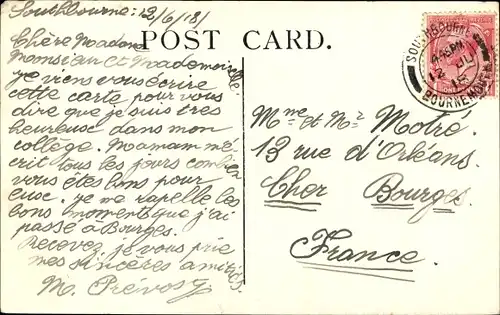 Southbourne: 12/6/18/
POST CARD.
Chère Madame
Monsieur et Mademoiselle
je viens vous écrire
cette carte pour vous
dire que je suis très
heureuse dans mon
collège. Maman m'é-
crit tous les jours combien
vous êtes bons pour
eux. je me rapelle les
bons moments que j'ai
passé à Bourges.
Recevez je vous prie
mes sincères amitiés.
M. Prévost
Mme et Mr Motré.
13 rue d'Orléans.
Cher Bourges.
France.
SOUTHBOURNE
BOURNEMOUTH
4.45PM
12 JU
18